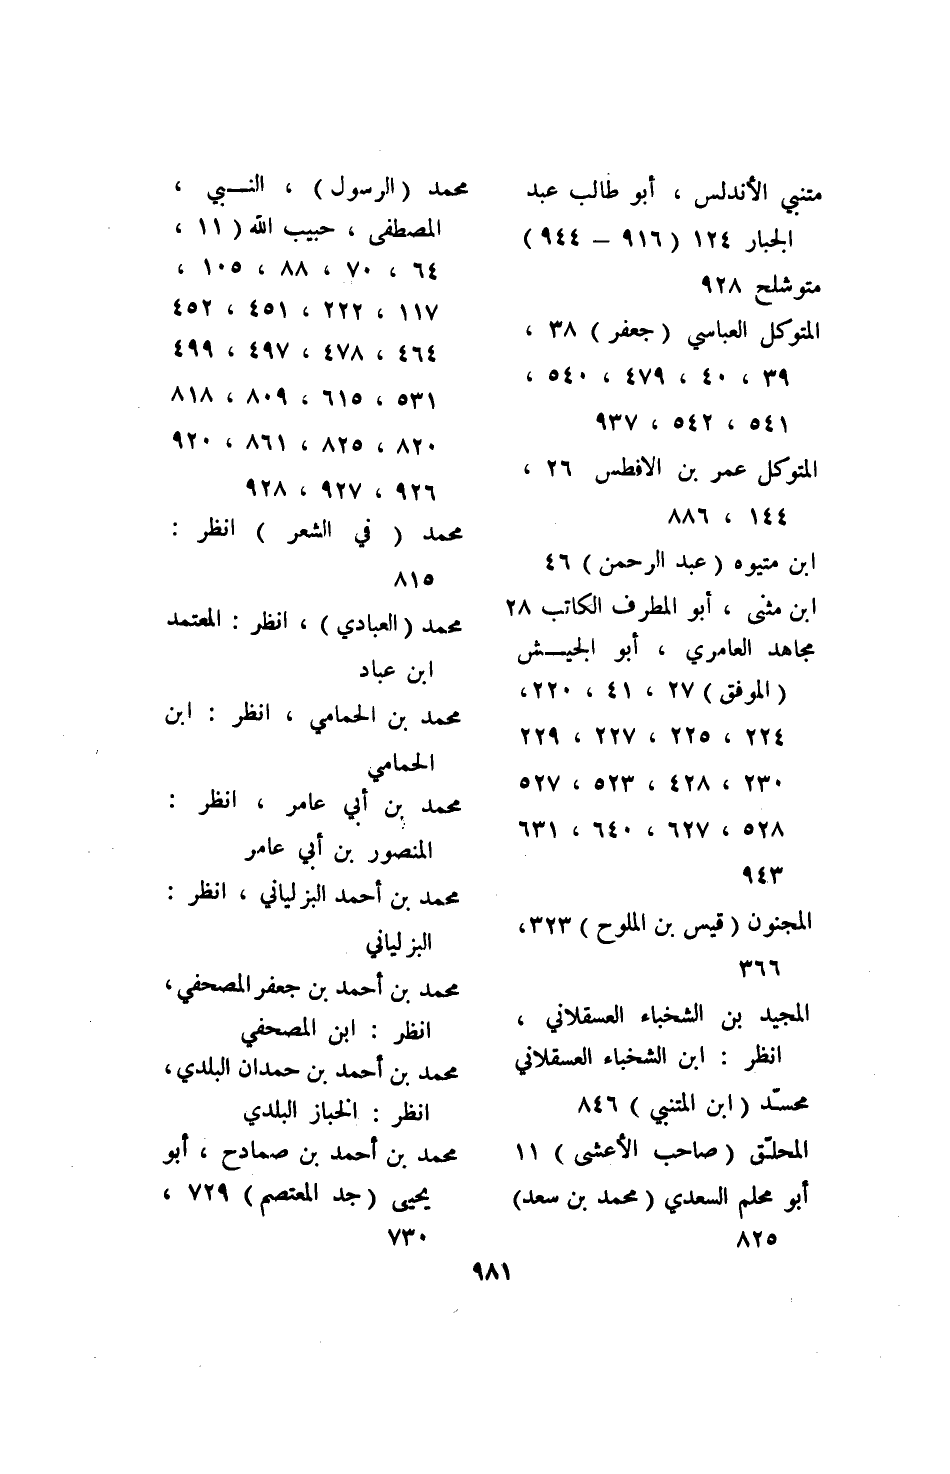 متنبي الأندلس ، أبو طالب عبد
الجبار ١٢٤ ( ٩١٦ – ٩٤٤ )
متوشلح ٩٢٨
المتوكل العباسي ( جعفر ) ٣٨ ،
٣٩ ، ٤٠ ، ٤٧٩ ، ٥٤٠ ،
٥٤١ ، ٥٤٢ ، ٩٣٧
المتوكل عمر بن الافطس ٢٦ ،
١٤٤ ، ٨٨٦
ابن متيوه ( عبد الرحمن ) ٤٦
ابن مثنى ، أبو المطرف الكاتب ٢٨
مجاهد العامري ، أبو الجيــش
( الموفق ) ٢٧ ، ٤١ ، ٢٢٠،
٢٢٤ ، ٢٢٥ ، ٢٢٧ ، ٢٢٩
٢٣٠ ، ٤٢٨ ، ٥٢٣ ، ٥٢٧
٥٢٨ ، ٦٢٧ ، ٦٤٠ ، ٦٣١
٩٤٣
المجنون ( قيس بن الملوح ) ٣٢٣،
٣٦٦
المجيد بن الشخباء العسقلاني ،
انظر : ابن الشخباء العسقلاني
محسّد ( ابن المتنبي ) ٨٤٦
المحلّق ( صاحب الأعشى ) ١١
أبو محلم السعدي ( محمد بن سعد)
٨٢٥
محمد ( الرسول ) ، النــبي ،
المصطفى ، حبيب الله ( ١١ ،
٦٤ ، ٧٠ ، ٨٨ ، ١٠٥ ،
١١٧ ، ٢٢٢ ، ٤٥١ ، ٤٥٢
٤٦٤ ، ٤٧٨ ، ٤٩٧ ، ٤٩٩
٥٣١ ، ٦١٥ ، ٨٠٩ ، ٨١٨
٨٢٠ ، ٨٢٥ ، ٨٦١ ، ٩٢٠
٩٢٦ ، ٩٢٧ ، ٩٢٨
محمد ( في الشعر ) انظر :
٨١٥
محمد ( العبادي ) ، انظر : المعتمد
ابن عباد
محمد بن الحمامي ، انظر : ابن
الحمامي
محمد بن أبي عامر ، انظر :
المنصور بن أبي عامر
محمد بن أحمد البزلياني ، انظر :
البزلياني
محمد بن أحمد بن جعفر المصحفي ،
انظر : ابن المصحفي
محمد بن أحمد بن حمدان البلدي ،
انظر : الخباز البلدي
محمد بن أحمد بن صمادح ، أبو
يحيى ( جد المعتصم ) ٧٢٩ ،
٧٣٠
٩٨١